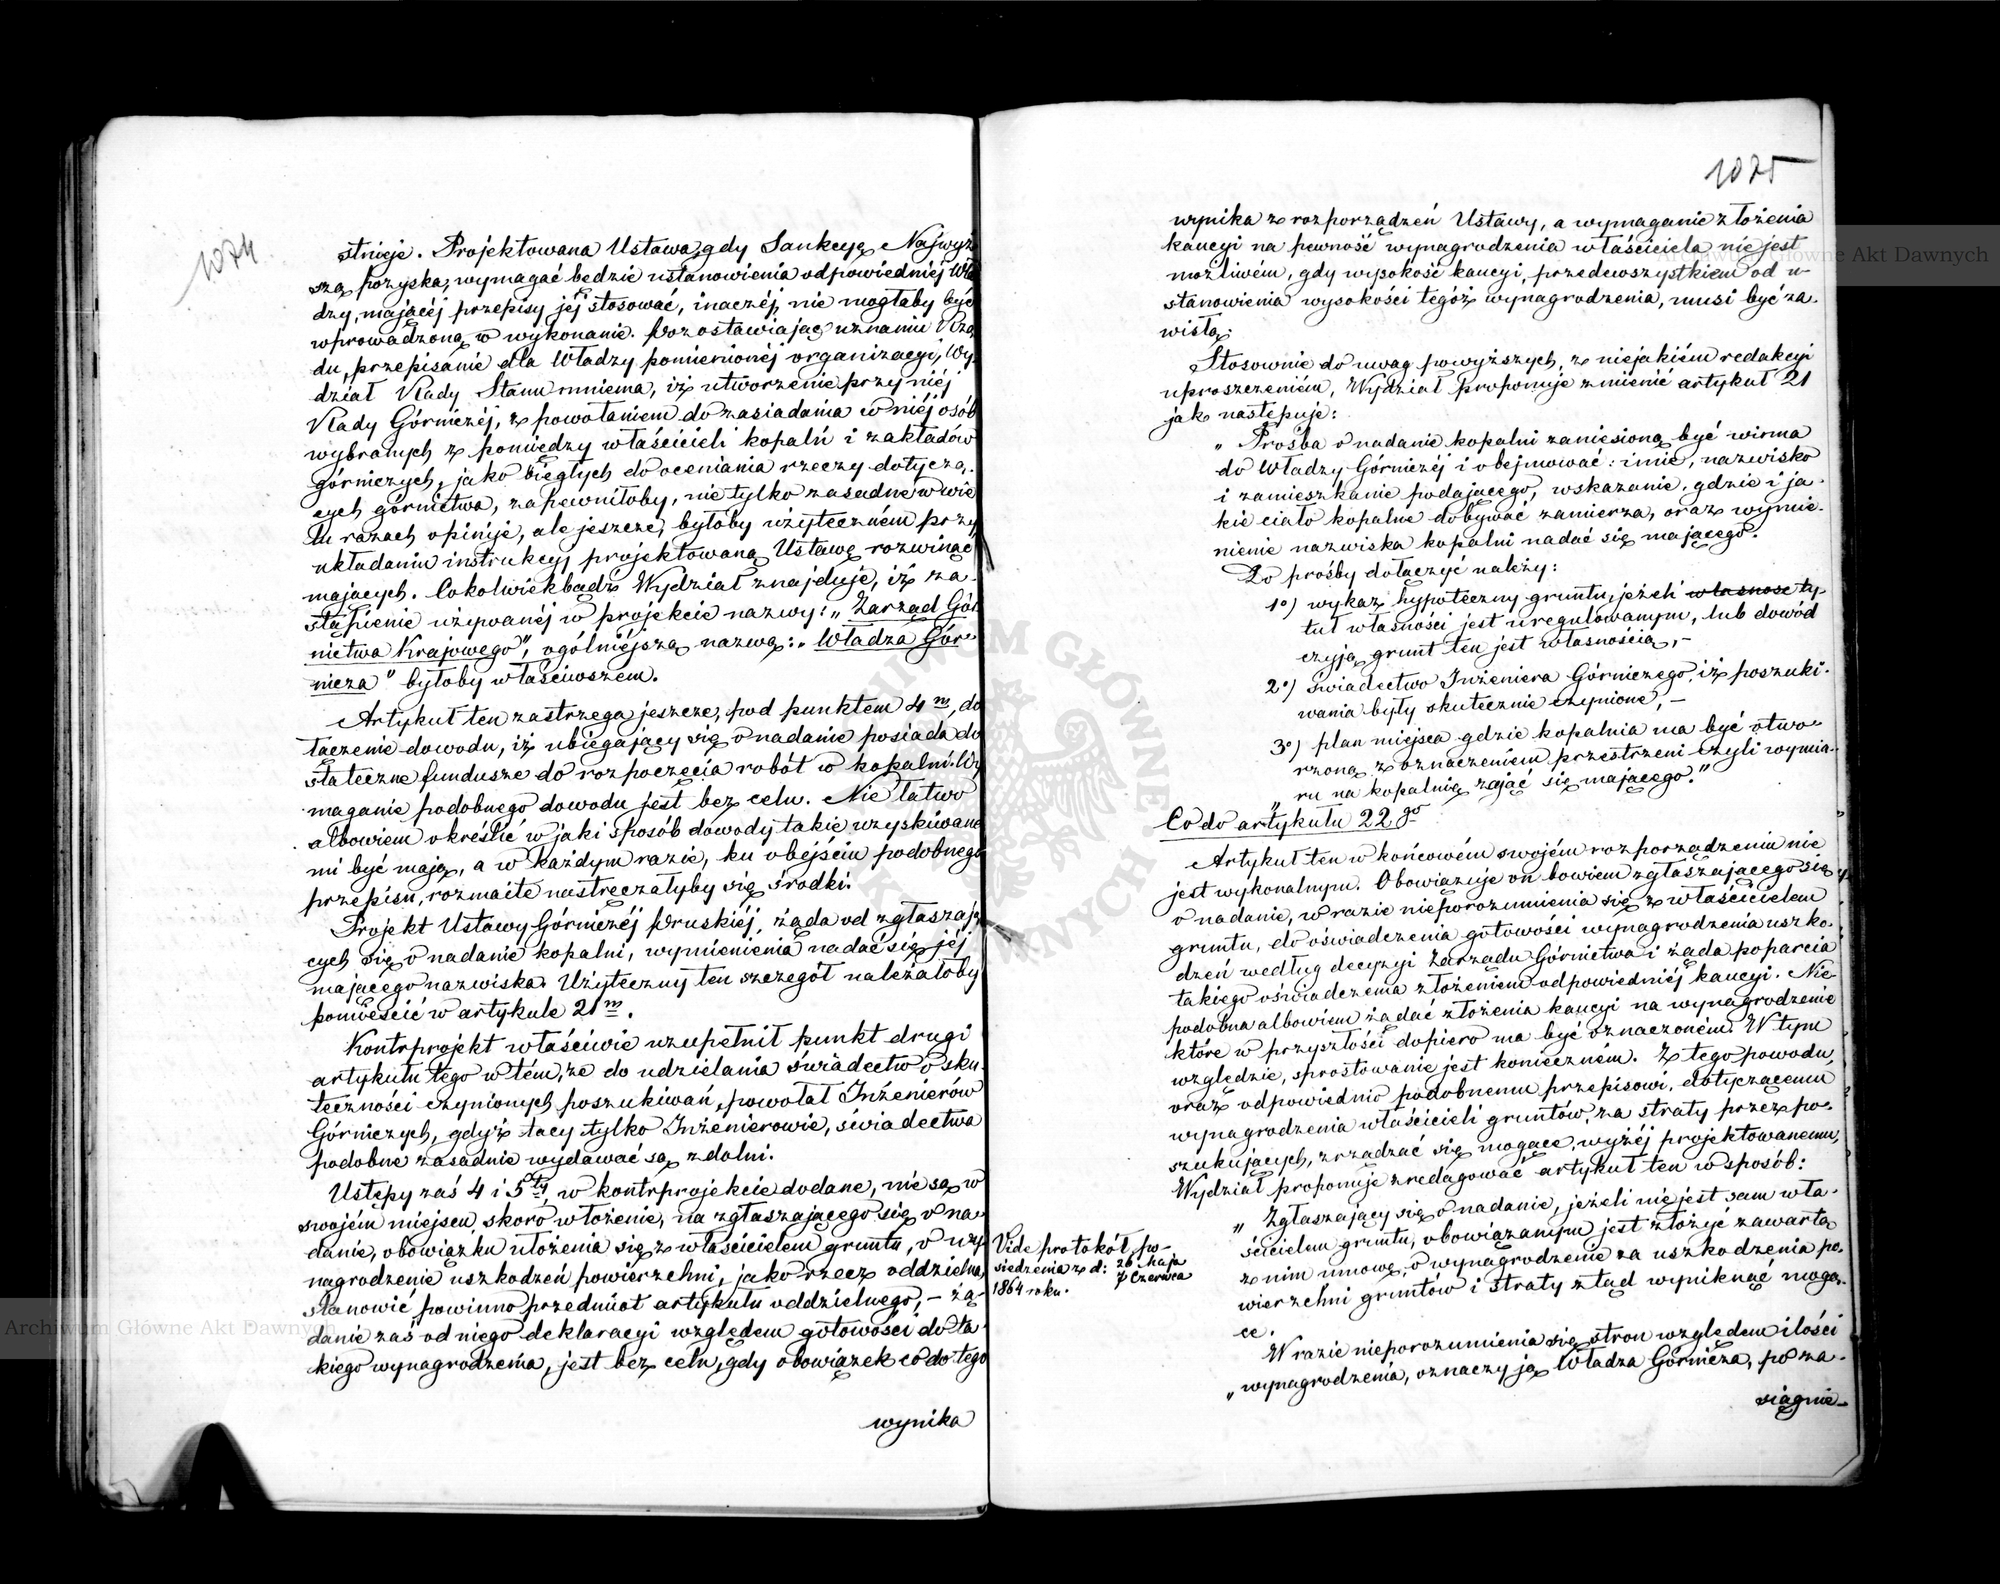 1074
stnieje. Projektowana Ustawa, gdy Sankcyę Najwyż
szą pozyska, wymagać będzie ustanowienia odpowiedniéj Wła
dzy, mającéj przepisy jéj stosować, inaczéj, nie mogłaby być
wprowadzoną w wykonanie. Pozostawiając uznaniu Rzą
du, przepisanie dla Władzy pomienionéj organizacyi, Wy
dział Rady Stanu mniema, iż utworzenie przy niéj
Rady Górniczéj, z powołaniem do zasiadania w niéj osób
wybranych z pomiędzy właścicieli kopalń i zakładów
górniczych, jako biegłych do oceniania rzeczy dotyczą-
cych górnictwa, zapewniłoby, nie tylko zasadne w wie
lu razach opinije, ale jeszcze, byłoby użyteczném przy
układaniu instrukcyj projektowaną Ustawę rozwinąć
mających. Cokolwiekbądź Wydział znajduje, iż za-
stąpienie używanéj w projekcie nazwy: „Zarząd Gór
nictwa Krajowego", ogólniejszą nazwą: „Władza Gór-
nicza" byłoby właściwszem.
Artykuł ten zastrzega jeszcze, pod punktem 4m, do
łączenie dowodu, iż ubiegający się o nadanie posiada do
stateczne fundusze do rozpoczęcia robót w kopalni. Wy
maganie podobnego dowodu jest bez celu. Nie łatwo
albowiem określić w jaki sposób dowody takie uzyskiwane
mi być mają, a w każdym razie, ku obejściu podobnego
przepisu, rozmaite nastręczałyby się środki.
Projekt Ustawy Górniczéj Pruskiéj, żąda od zgłaszają
cych się o nadanie kopalni, wymienienia nadać się jéj
mającego nazwiska. Użyteczny ten szczegół należałoby
pomieścić w artykule 21m.
Kontrprojekt właściwie uzupełnił punkt drugi
artykułu tego w tém, że do udzielania świadectw o sku
teczności czynionych poszukiwań, powołał Inżenierów
Górniczych, gdyż tacy tylko Inżenierowie, świadectwa
podobne zasadnie wydawać są zdolni.
Ustępy zaś 4 i 5ty, w kontrprojekcie dodane, nie są w
swojém miejscu, skoro włożenie, na zgłaszającego się o na
danie, obowiązku ułożenia się z właścicielem gruntu, o wy
nagrodzenie uszkodzeń powierzchni, jako rzecz oddzielna,
stanowić powinno przedmiot artykułu oddzielnego, – żą-
danie zaś od niego deklaracyi względem gotowości do ta-
kiego wynagrodzenia, jest bez celu, gdy obowiązek co do tego
wynika
1075
wynika z rozporządzeń Ustawy, a wymaganie złożenia
kaucyi na pewność wynagrodzenia właściciela nie jest
możliwém, gdy wysokość kaucyi, przedewszystkiem od u-
stanowienia wysokości tegóż wynagrodzenia, musi być za-
wisłą.
Stosownie do uwag powyższych, z niejakiém redakcyi
uproszczeniém, Wydział proponuje zmienić artykuł 21
jak następuje:
„Prośba o nadanie kopalni zaniesioną być winna
do Władzy Górniczéj i obejmować: imie, nazwisko
i zamieszkanie podającego, wskazanie, gdzie i ja-
kie ciało kopalne dobywać zamierza, oraz wymie-
nienie nazwiska kopalni nadać się mającego.
Do prośby dołączyć należy:
1o) wykaz hypoteczny gruntu, jeżeli własnosc ty-
tuł własności jest uregulowanym, lub dowód
czyją grunt ten jest własnością, –
2o) świadectwo Inżeniera Górniczego, iż poszuki-
wania były skutecznie czynione, –
3o) plan miejsca gdzie kopalnia ma być otwo-
rzoną z oznaczeniem przestrzeni czyli wymia-
ru na kopalnię zająć się mającego."
Co do artykułu 22go
Artykuł ten w końcowém swojém rozporządzeniu nie
jest wykonalnym. Obowiązuje on bowiem zgłaszającego się
o nadanie, w razie nieporozumienia się z właścicielem
gruntu, do oświadczenia gotowości wynagrodzenia uszko-
dzeń według decyzyi Zarządu Górnictwa i żąda poparcia
takiego oświadczenia złożeniem odpowiedniéj kaucyi. Nie
podobna albowiem żądać złożenia kaucyi na wynagrodzenie
które w przyszłości dopiero ma być oznaczoném. W tym
względzie, sprostowanie jest konieczném. Z tego powodu,
oraz odpowiednio podobnemu przepisowi, dotyczącemu
wynagrodzenia właścicieli gruntów, za straty przez po-
szukujących, zrządzać się mogące, wyżéj projektowanemu,
Wydział proponuje zredagować artykuł ten w sposób:
„Zgłaszający się o nadanie, jeżeli nie jest sam wła-
ścicielem gruntu, obowiązanym jest złożyć zawartą
z nim umowę, o wynagrodzenie za uszkodzenia po-
wierzchni gruntów i straty ztąd wyniknąć mogą-
ce.
Vide protokół po-
siedzenia z d: 26 Maja
7 Czerwca
1864 roku.
W razie nieporozumienia się stron względem ilości
„wynagrodzenia, oznaczy ją Władza Górnicza, po za-
siągnie-
Archiwum Główne Akt Dawnych
Archiwum Główne Akt Dawnych